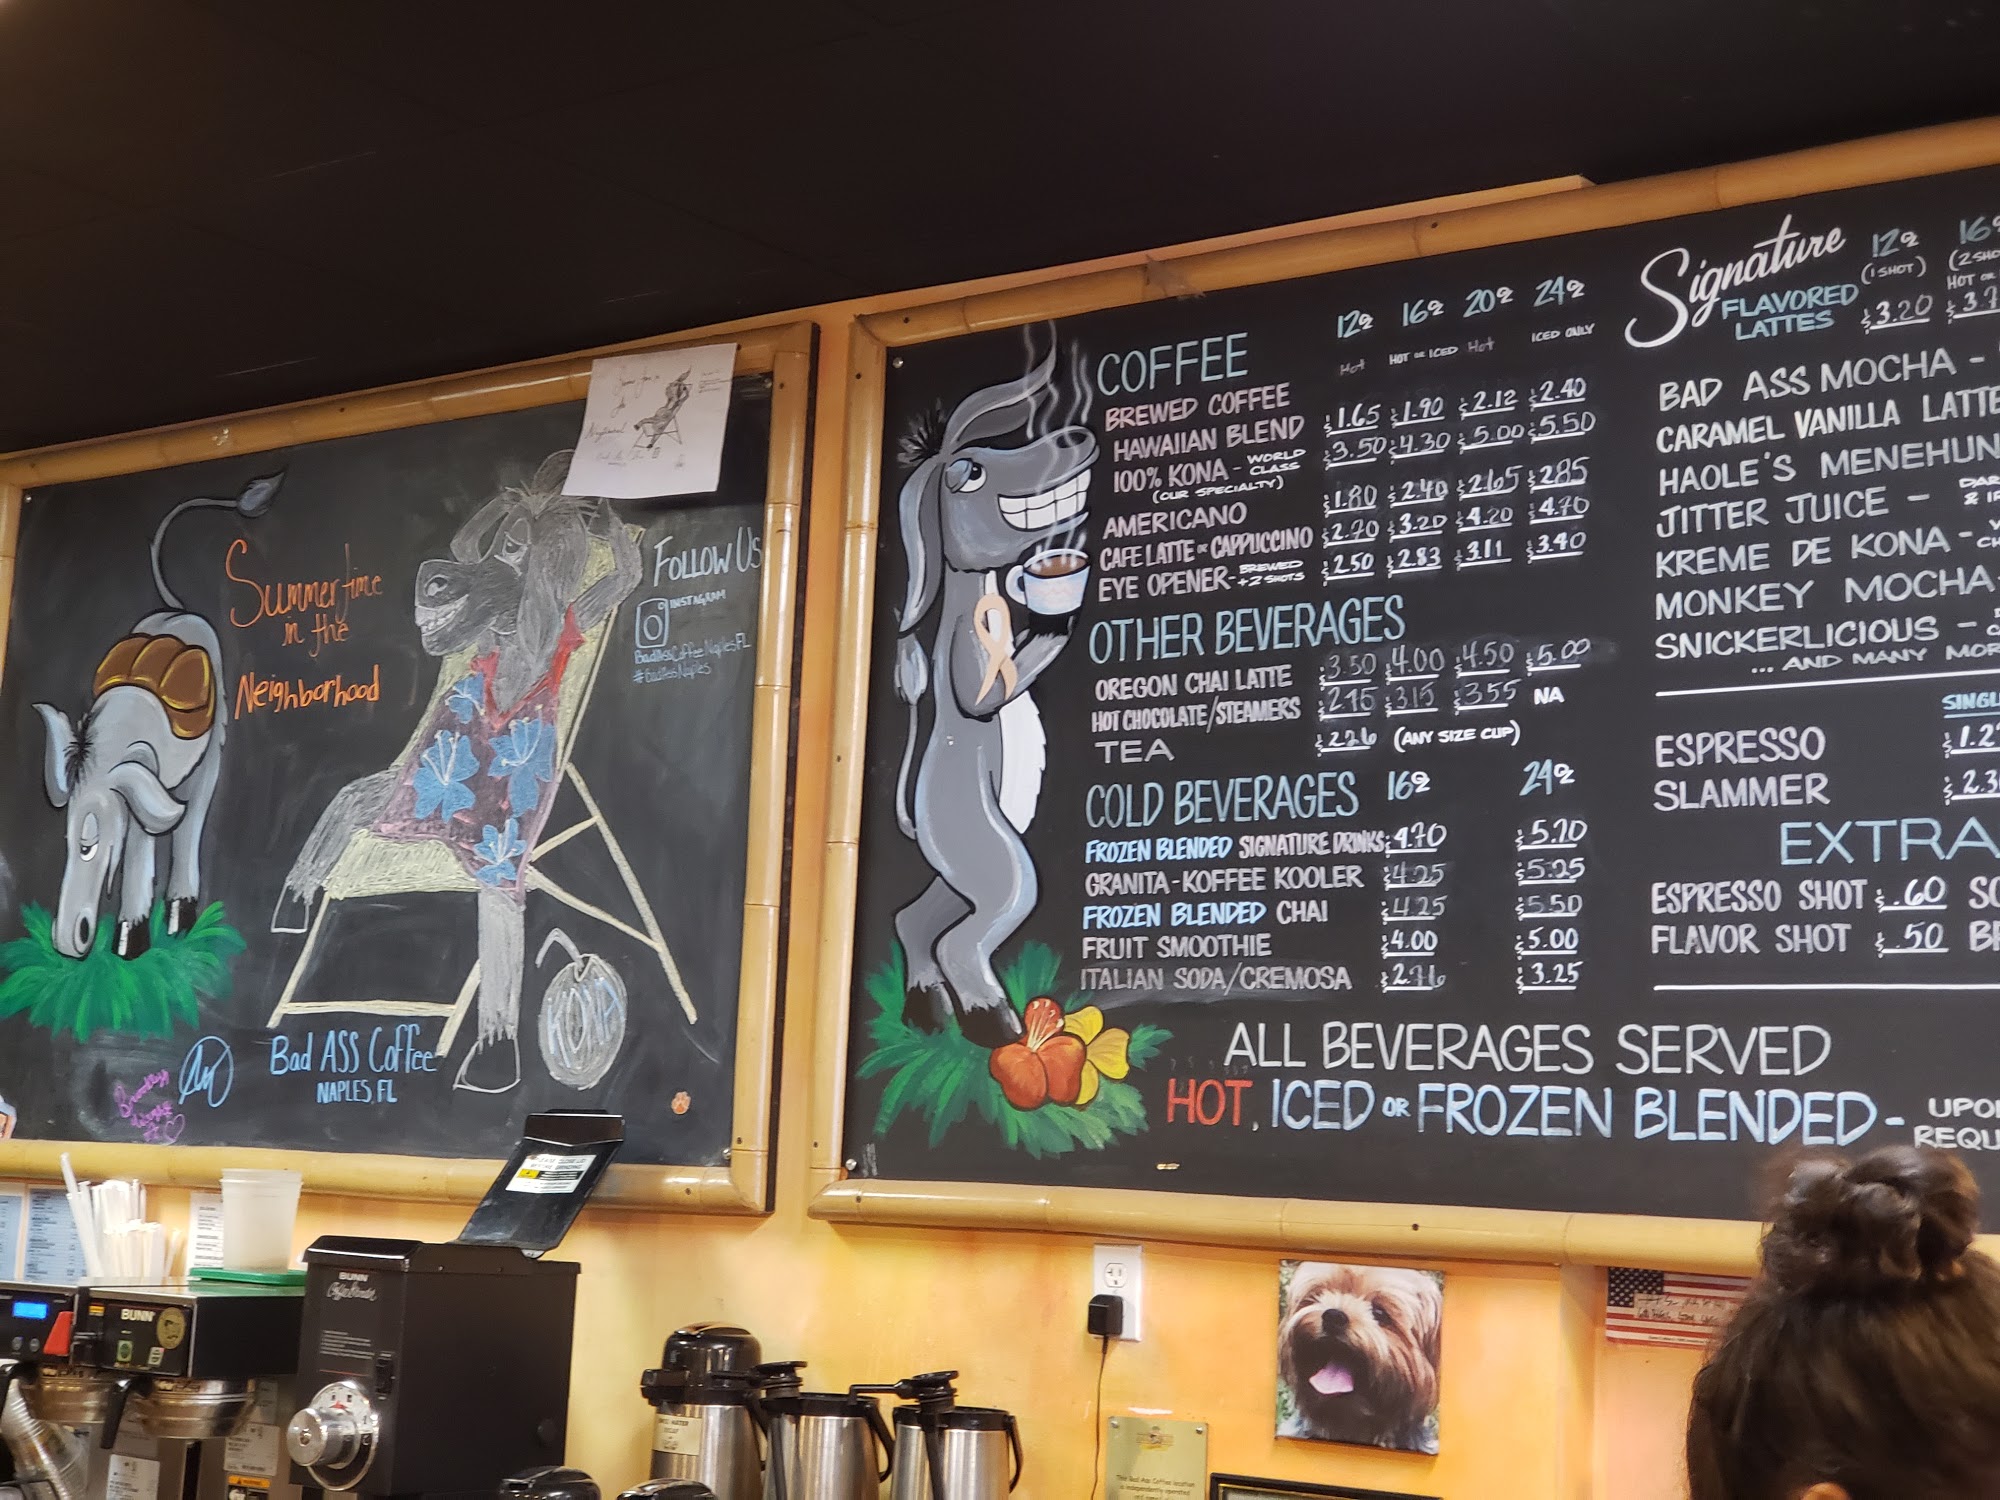 Summertime
in the
Neighborhood
FOLLOW US
INSTAGRAM
BadAssCoffeeNaplesFL
#BadAssNaples
KONA
Bad ASS Coffee
NAPLES, FL
COFFEE 12oz 16oz 20oz 24oz
Hot HOT OR ICED Hot ICED ONLY
BREWED COFFEE $1.65 $1.90 $2.12 $2.40
HAWAIIAN BLEND $3.50 $4.30 $5.00 $5.50
100% KONA - WORLD CLASS
(OUR SPECIALTY)
AMERICANO $1.80 $2.40 $2.65 $2.85
CAFE LATTE OR CAPPUCCINO $2.70 $3.20 $4.20 $4.70
EYE OPENER - BREWED +2 SHOTS $2.50 $2.83 $3.11 $3.40
OTHER BEVERAGES
OREGON CHAI LATTE $3.50 $4.00 $4.50 $5.00
HOT CHOCOLATE/STEAMERS $3.15 $3.55 NA
TEA $2.26 (ANY SIZE CUP)
COLD BEVERAGES 16oz 24oz
FROZEN BLENDED SIGNATURE DRINKS $4.70 $5.70
GRANITA-KOFFEE KOOLER $4.25 $5.25
FROZEN BLENDED CHAI $4.25 $5.50
FRUIT SMOOTHIE $4.00 $5.00
ITALIAN SODA/CREMOSA $3.25
ALL BEVERAGES SERVED
HOT, ICED OR FROZEN BLENDED -
Signature
FLAVORED
LATTES
12oz 16
(1 SHOT) (2 SHO
HOT OR
$3.20 $3.7
BAD ASS MOCHA -
CARAMEL VANILLA LATTE
HAOLE'S MENEHUN
JITTER JUICE - DAR
& IF
KREME DE KONA -
MONKEY MOCHA
SNICKERLICIOUS -
... AND MANY MOR
SINGL
ESPRESSO $1.2
SLAMMER $2.3
EXTRA
ESPRESSO SHOT $.60 SO
FLAVOR SHOT $.50 B
UPO
REQU
BUNN
BUNN